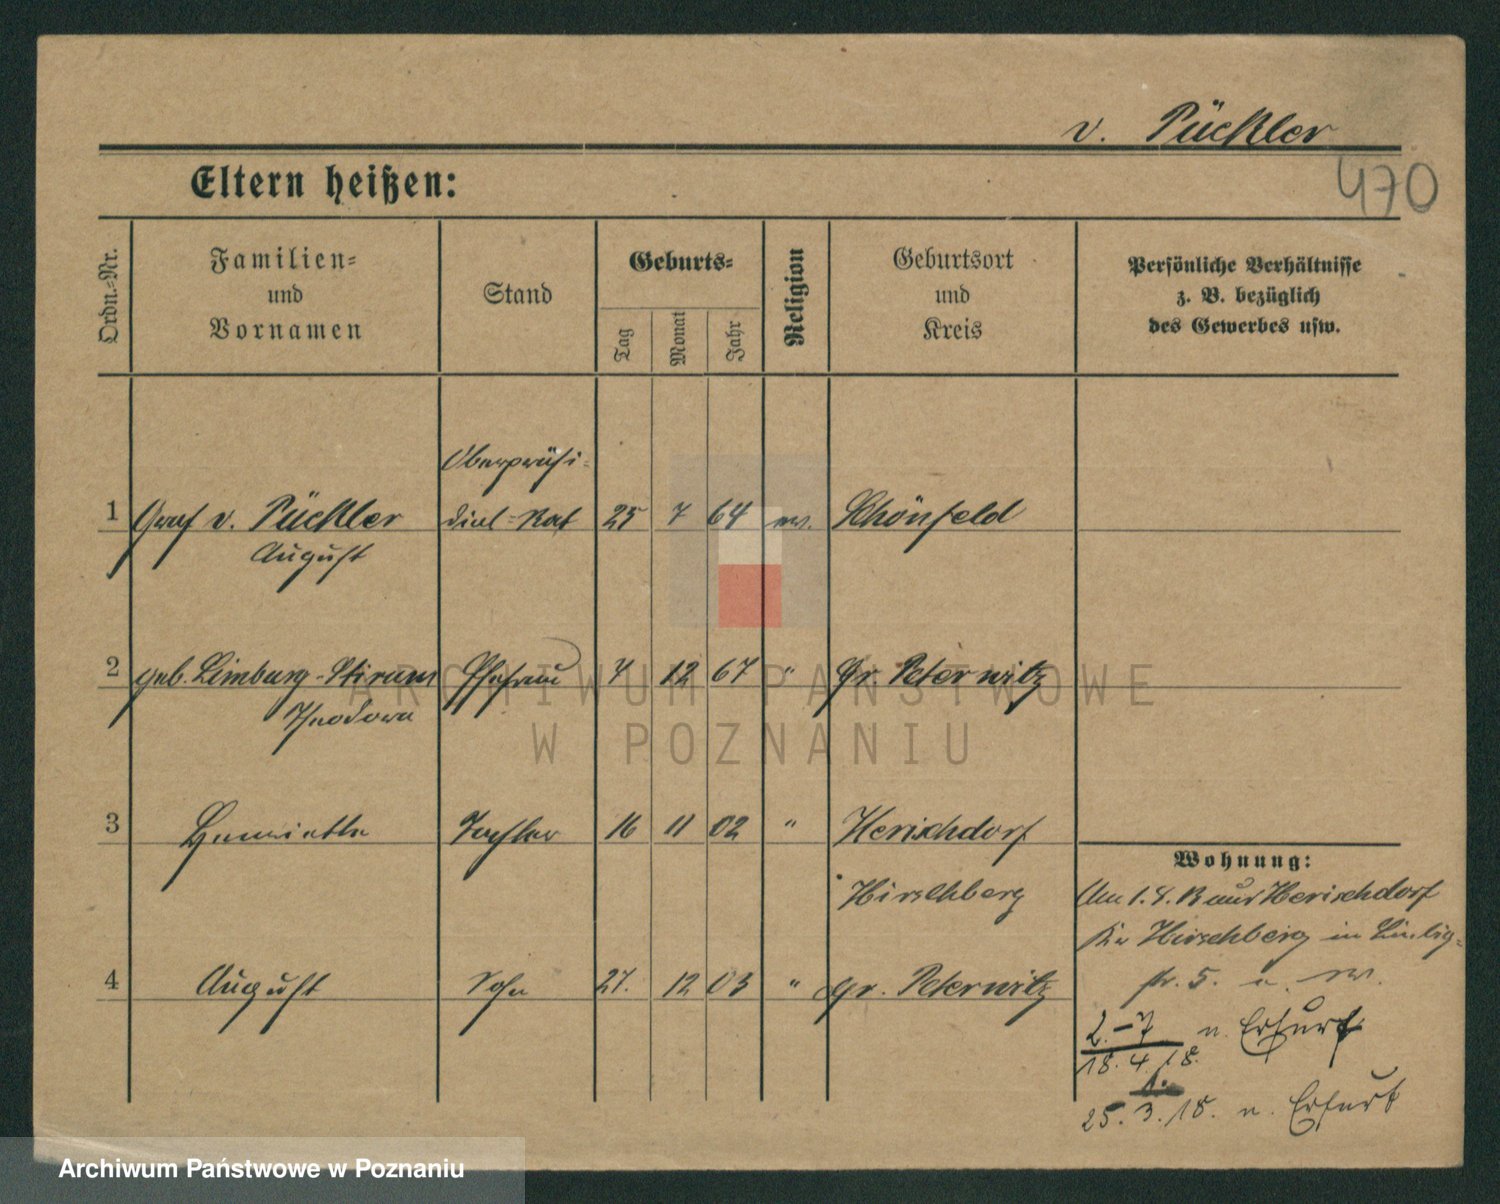 v. Pückler
470
Eltern heißen:
Ordn.-Nr.
Familien-
und
Vornamen
Stand
Geburts-
Tag
Monat
Jahr
Religion
Geburtsort
und
Kreis
Persönliche Verhältnisse
z. B. bezüglich
des Gewerbes usw.
Oberpräsi-
1 Graf v. Pückler dial-Rat 25 7 64 ev. Schönfeld
August
2 geb. Limburg-Stirum Ehefrau 4 12 67 " Gr. Peterwitz
Theodora
3 Henriette Tochter 16 11 02 " Herischdorf
Hirschberg
4 August Sohn 27. 12 03 " Gr. Peterwitz
Wohnung:
Am 1.4.13 aus Herischdorf
Kr Hirschberg in
str. 5.
2.-7 n. Erfurt
18.4.18.
1.
25.3.18. n. Erfurt
ARCHIWUM PAŃSTWOWE
W POZNANIU
Archiwum Państwowe w Poznaniu